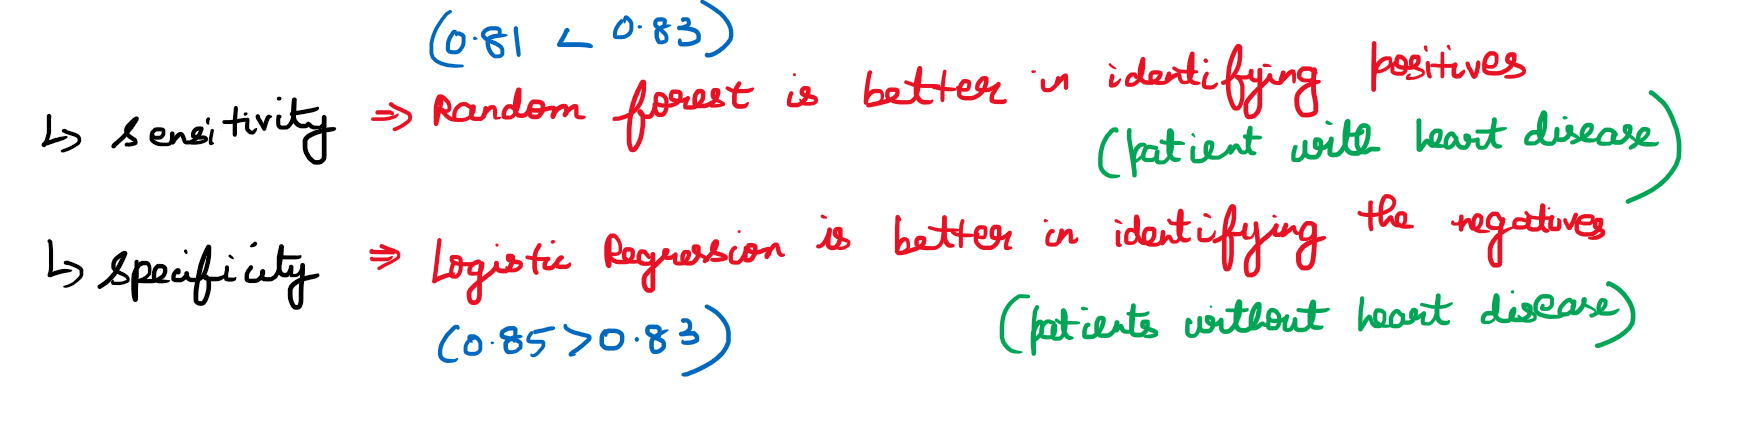 (0.81 < 0.83)
↳ sensitivity ⇒ Random forest is better in identifying positives
(patient with heart disease)
↳ specificity ⇒ Logistic Regression is better in identifying the negatives
(0.85 > 0.83) (patients without heart disease)